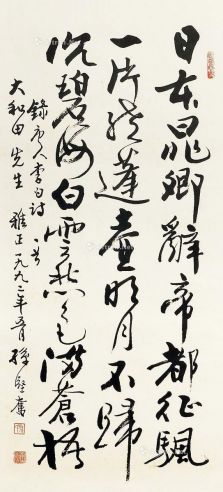 日本晁卿辞帝都征帆
一片绕蓬壶明月不归
沉碧海白云愁色满苍梧
录唐人李白诗一首
大和田先生 雅正 一九九二年五月 孙坚奋